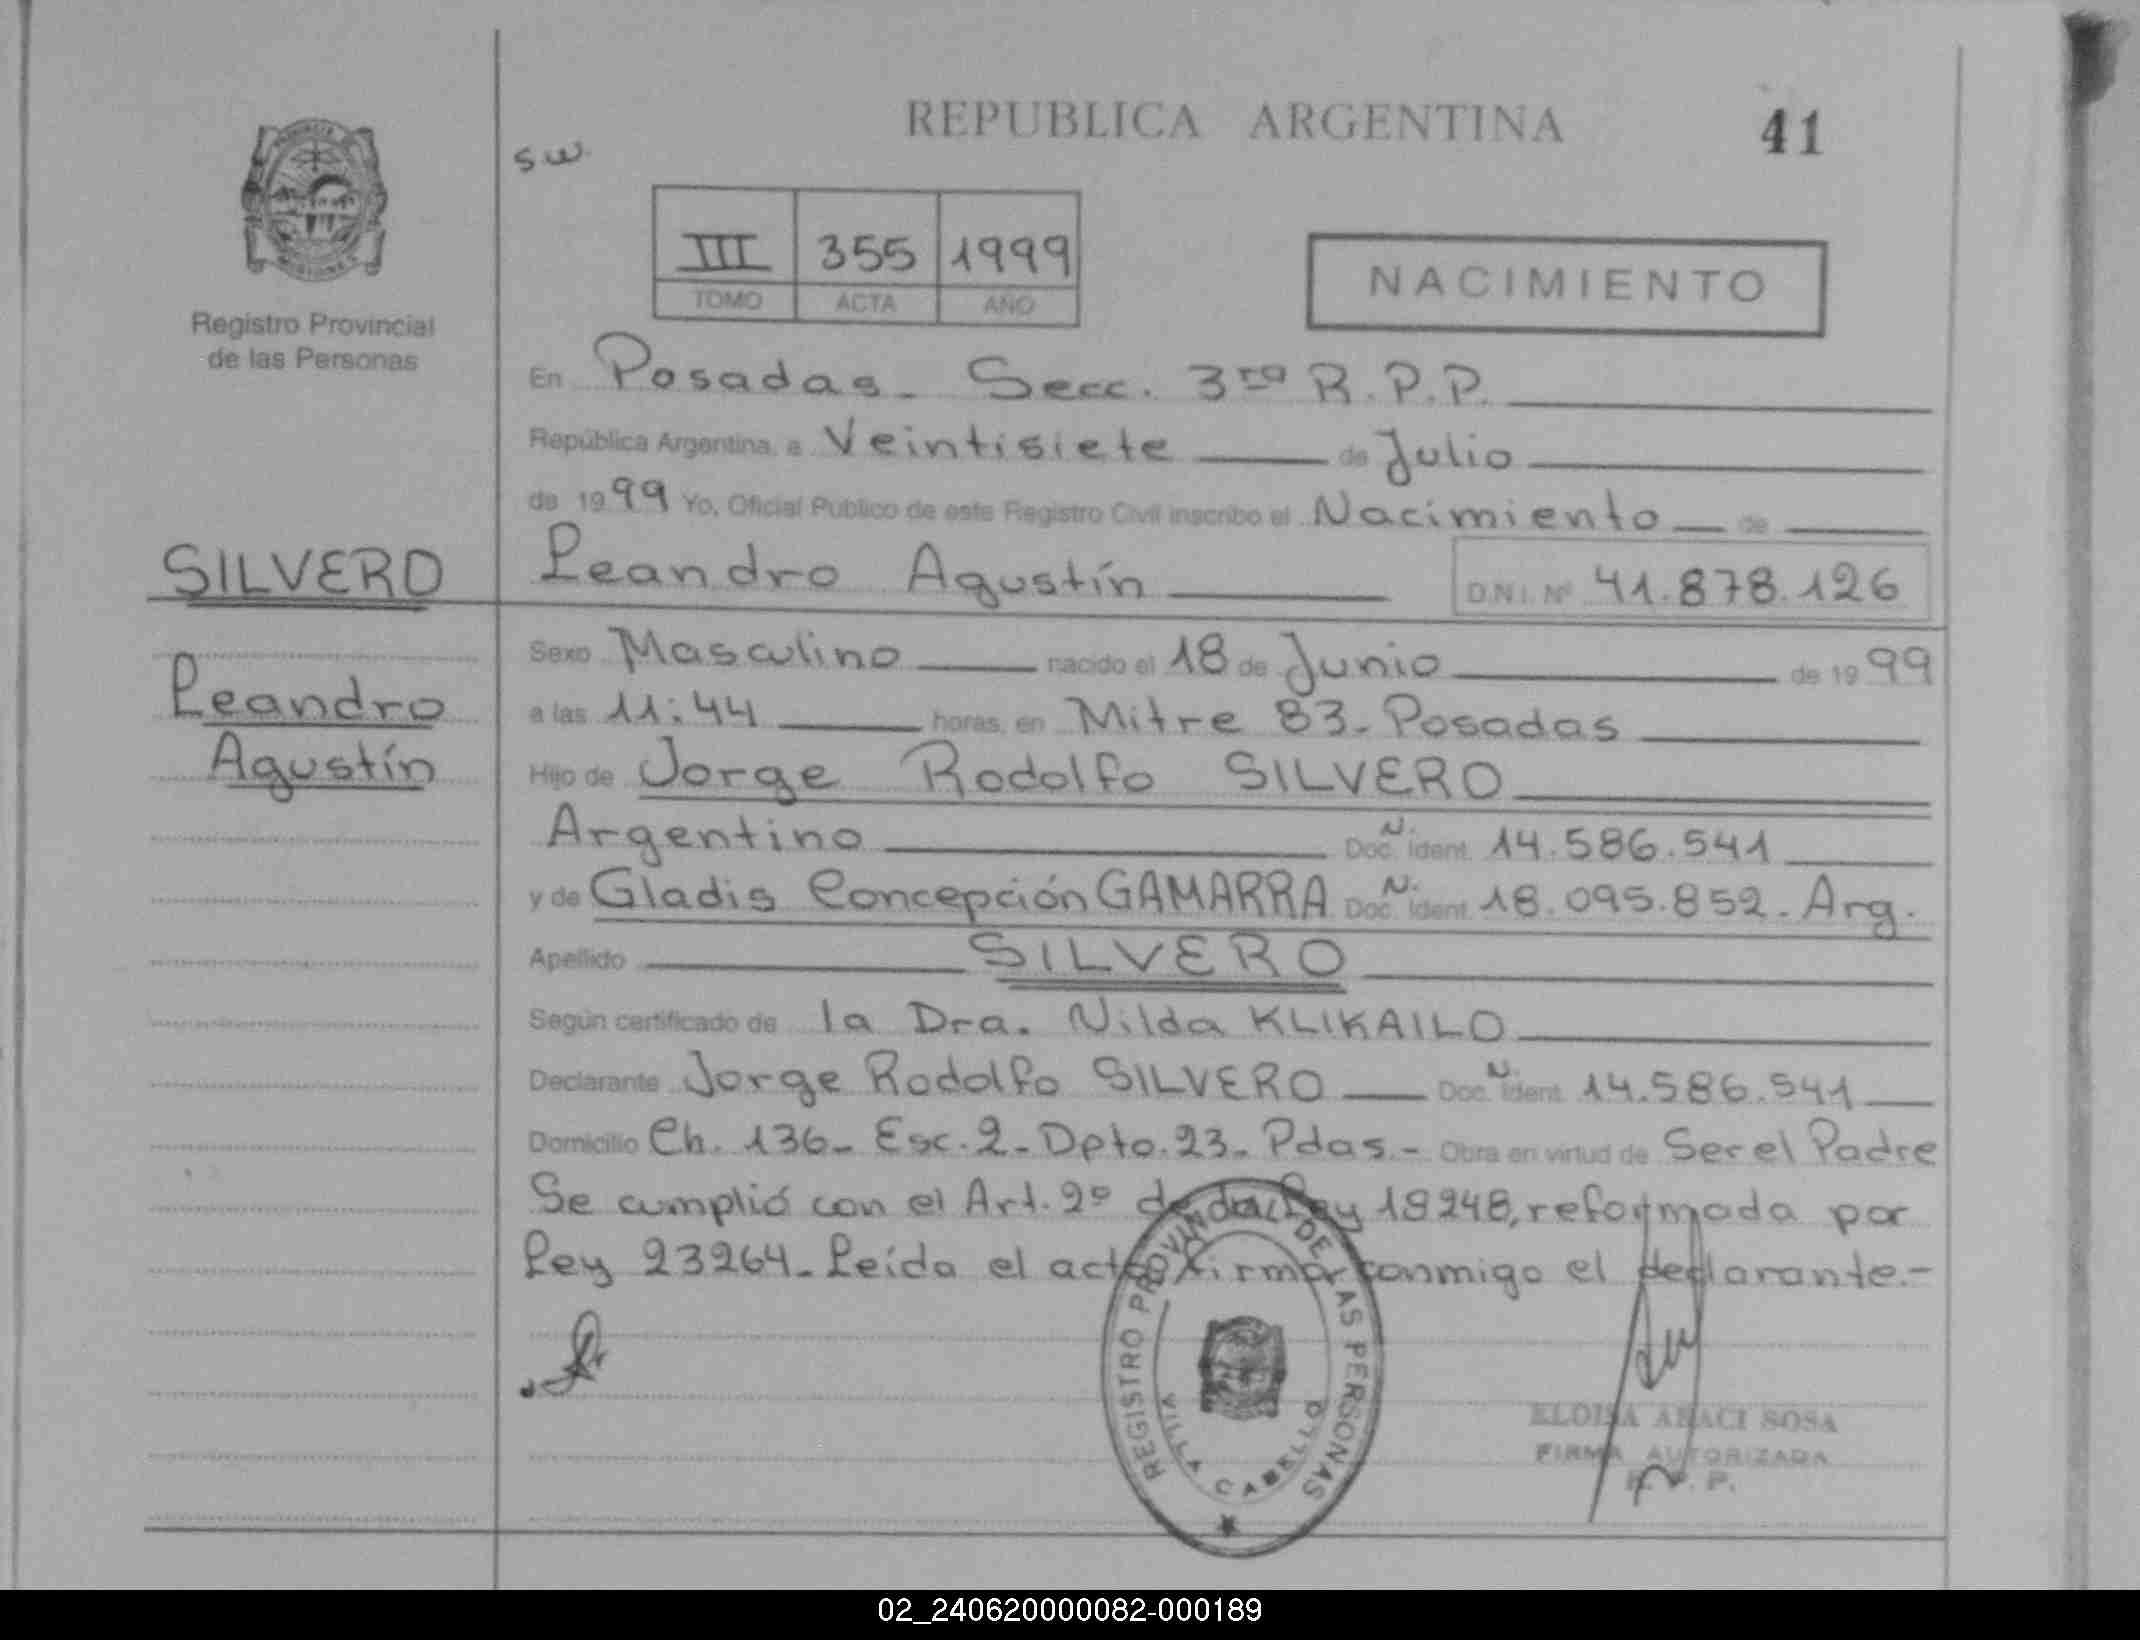 REPUBLICA ARGENTINA
41
s.w.
III 355 1999
TOMO ACTA AÑO
NACIMIENTO
Registro Provincial
de las Personas
En Posadas - Secc. 3ra R.P.P.
República Argentina, a Veintisiete de Julio
de 1999 Yo, Oficial Publico de este Registro Civil inscribo el Nacimiento de
SILVERO
Leandro Agustín D.N.I. Nº 41.878.126
Leandro
Agustín
Sexo Masculino nacido el 18 de Junio de 1999
a las 11:44 horas, en Mitre 83 - Posadas
Hijo de Jorge Rodolfo SILVERO
Argentino Doc. N. Ident. 14.586.541
y de Gladis Concepción GAMARRA Doc. N. Ident. 18.095.852 - Arg.
Apellido SILVERO
Según certificado de la Dra. Nilda KLIKAILO
Declarante Jorge Rodolfo SILVERO Doc. N. Ident. 14.586.541
Domicilio Ch. 136 - Esc. 2 - Dpto. 23 - Pdas. - Obra en virtud de Ser el Padre
Se cumplió con el Art. 2º de la Ley 18248, reformada por
Ley 23264 - Leída el acta firma conmigo el declarante.-
REGISTRO PROVINCIAL DE LAS PERSONAS
VILLA CABELLO
ELOISA ARACI SOSA
FIRMA AUTORIZADA
R. P. P.
02_240620000082-000189